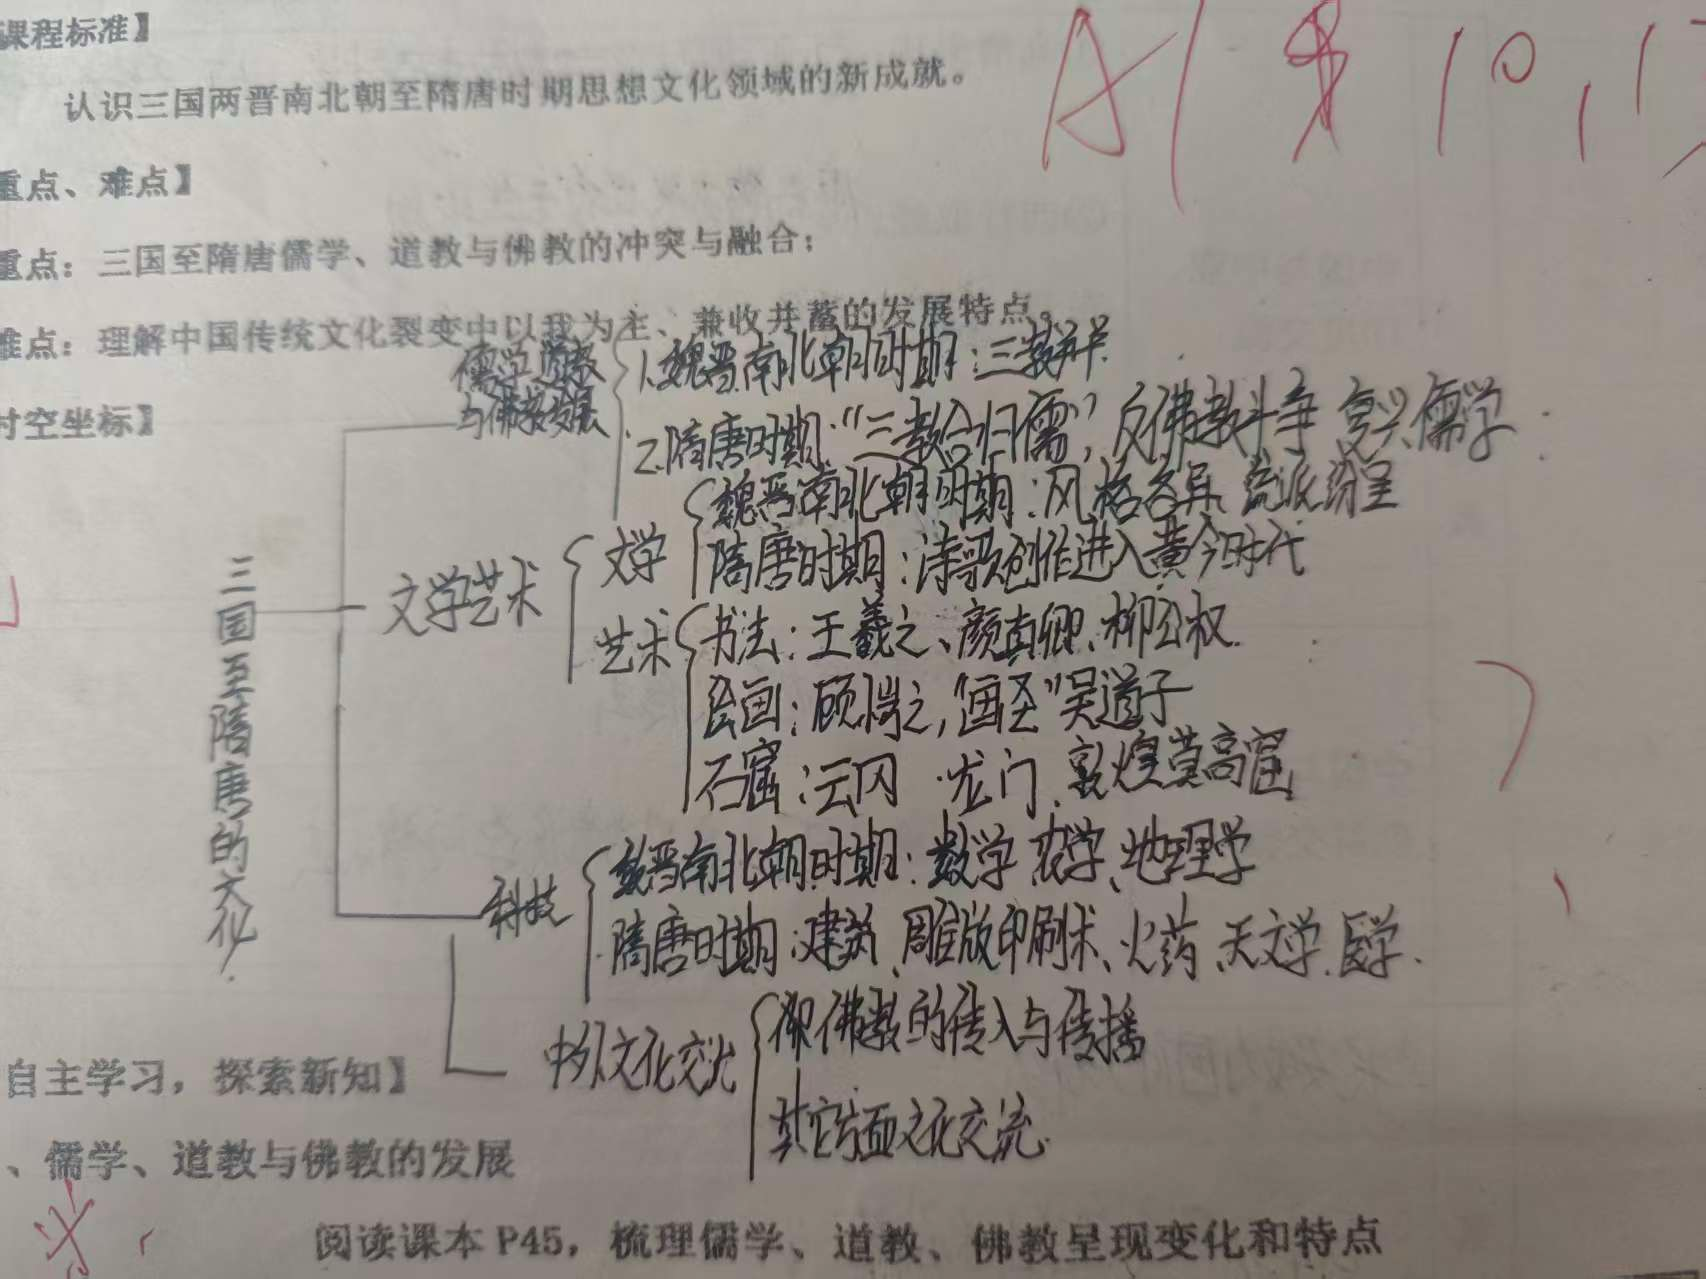 课程标准】
认识三国两晋南北朝至隋唐时期思想文化领域的新成就。
重点、难点】
重点：三国至隋唐儒学、道教与佛教的冲突与融合；
难点：理解中国传统文化裂变中以我为主、兼收并蓄的发展特点。
时空坐标】
A 1 10,1
三国至隋唐的文化
儒学道教
与佛教发展
1.魏晋南北朝时期：三教并
2.隋唐时期："三教合归儒"，反佛教斗争 复兴儒学
文学艺术
文学
魏晋南北朝时期：风格各异、流派纷呈
隋唐时期：诗歌创作进入黄金时代
艺术
书法：王羲之、颜真卿、柳公权.
绘画：顾恺之，"画圣"吴道子
石窟：云冈 龙门、敦煌莫高窟
科技
魏晋南北朝时期：数学、农学、地理学
隋唐时期：建筑、雕版印刷术、火药、天文学、医学.
中外文化交流
佛教的传入与传播
其它方面文化交流.
自主学习，探索新知】
、儒学、道教与佛教的发展
阅读课本 P45，梳理儒学、道教、佛教呈现变化和特点